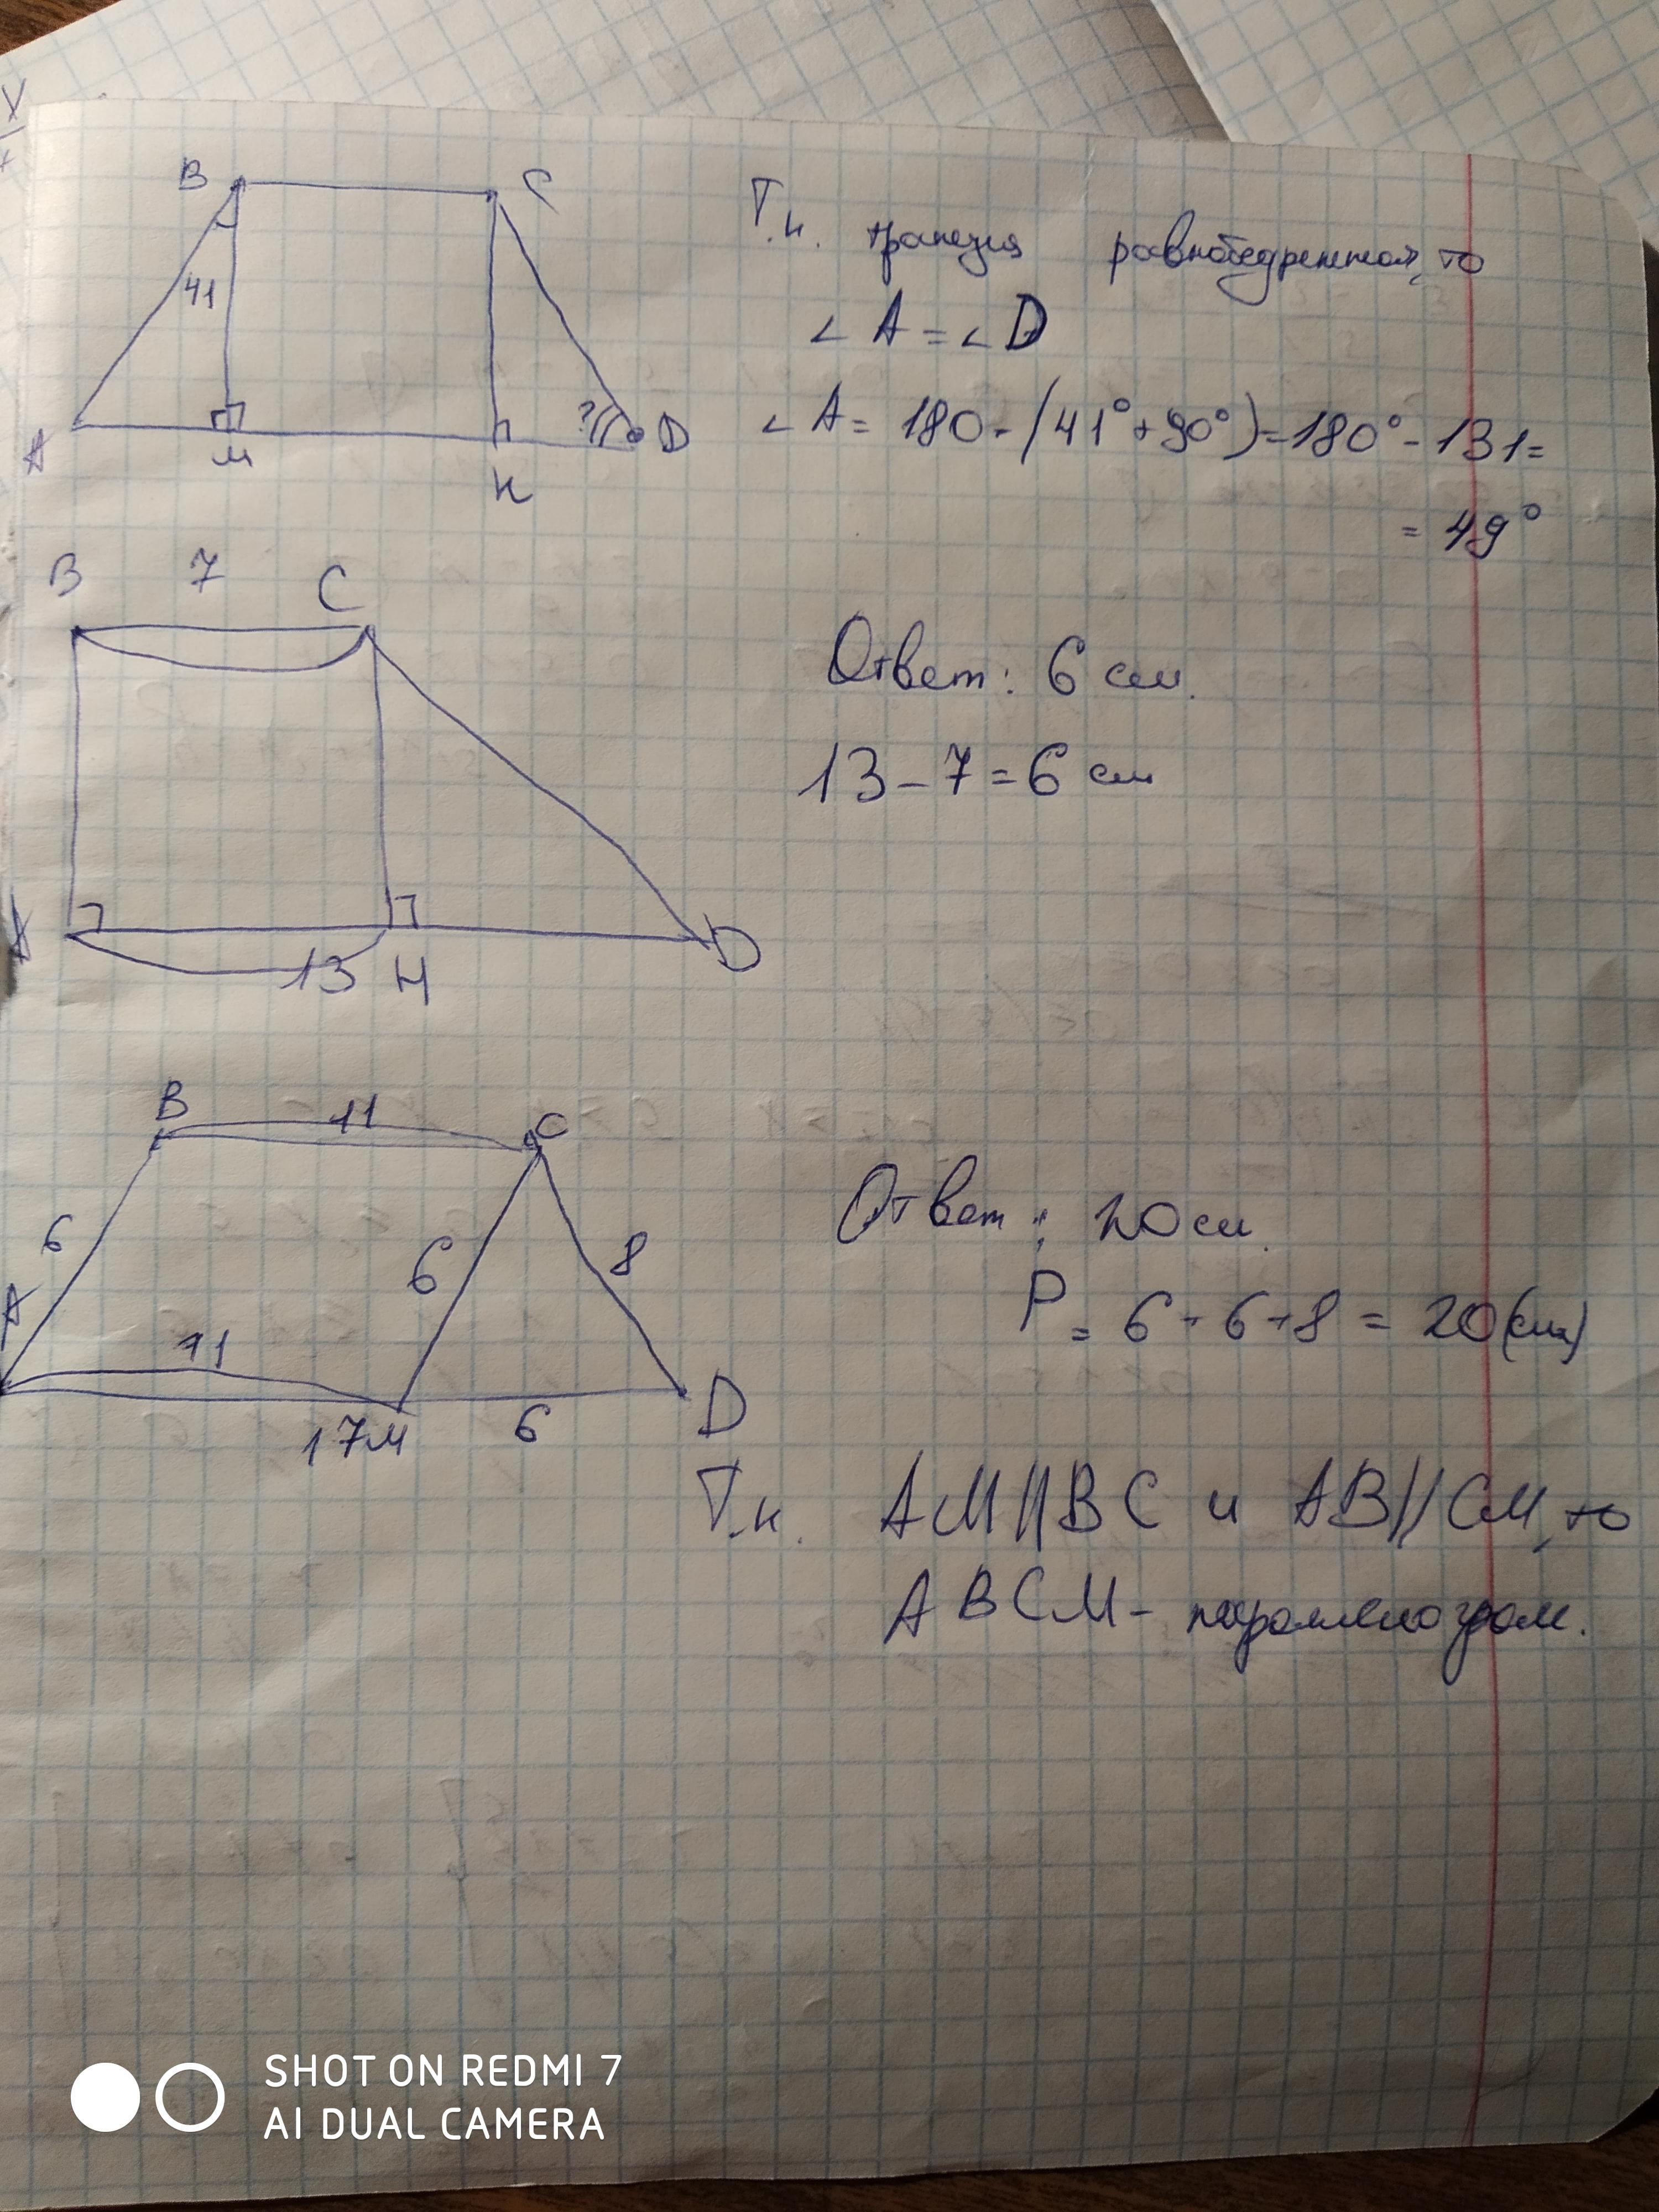 B C
Т.к. трапеция равнобедренная, то
41
∠ A = ∠ D
∠ A = 180 - (41° + 90°) = 180° - 131 =
? D
A M
K
= 49°
B 7 C
Ответ: 6 см.
13 - 7 = 6 см
A 13 H D
B 11 C
Ответ: 20 см.
6 6 8
P = 6 + 6 + 8 = 20 (см)
A
11
17 M 6 D
Т.к. AM||BC и AB||CM, то
ABCM - параллелограм.
SHOT ON REDMI 7
AI DUAL CAMERA